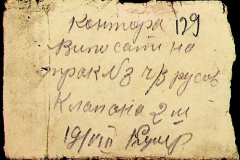 Контора 129
Выписати на
трак №3 ч/з русов
Клапана 2 ш
19/VIII